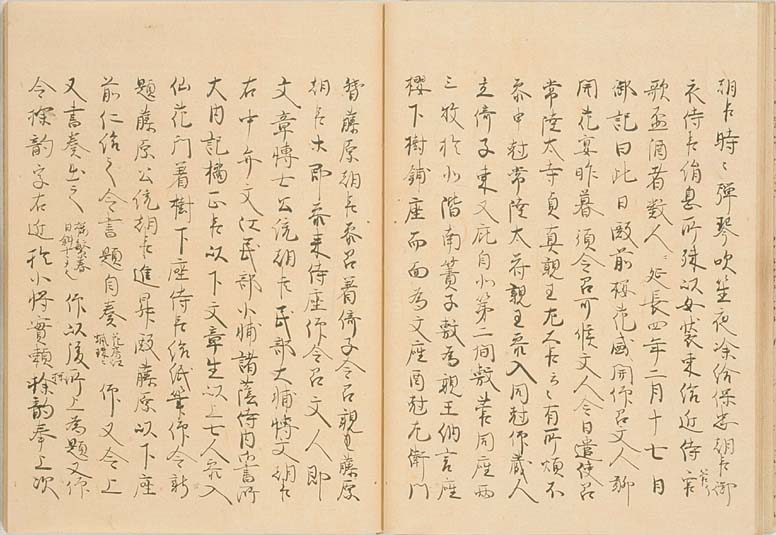 朝臣時々弾琴吹笙夜深給保忠朝臣御
衣侍臣絹息所殊以女装束給近侍
歌盃酒者数人々延長四年二月十七日
御記曰此日殿前桜花盛開仰召文人聊
開花宴昨暮須令召可候文人今日遣使召
常陸太守貞真親王左大臣云々有所煩不
参申尅常陸太守親王参入同尅仰蔵人
立倚子東又庇自北第二間敷菅円座両
三枚於北階南簀子敷為親王納言座
桜下樹鋪座而面為文座酉尅左衛門
督藤原朝臣参召着倚子令召親王藤原
朝臣大即参来侍座仰令召文人即
文章博士公統朝臣民部大輔博文朝臣
右中弁文江民部少輔諸蔭侍内御書所
大内記橘正臣以下文章生以上七人参入
仙花門着樹下座侍臣給紙筆仰令新
題藤原公統朝臣進昇殿藤原以下座
前仁給之令書題自奏 仰又令上
又書奏出之 桜繁春日斜 仰以後所上為題又仰
令探韻字右近権少将実頼探韻奉上次